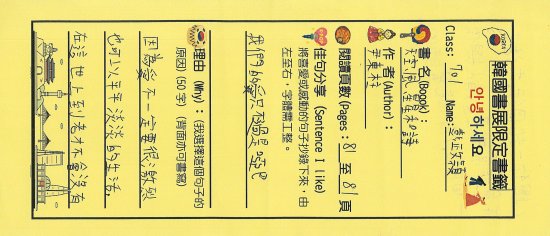 韓國書展限定書籤
안녕하세요
Class: 701 Name:
書名(Book):
天空、風、星星和詩
作者(Author):
尹東柱
閱讀頁數(Pages: 81 至 81 頁
佳句分享 (Sentence I like)
將喜愛或感動的句子抄錄下來,由
左至右,字體需工整。
我們的愛只不過是啞巴
理由 (Why):(我選擇這個句子的
原因(50字) (背面亦可書寫)
因為愛不一定要很熱烈
也可以平平淡淡的生活,
在這世上到老才不會沒有